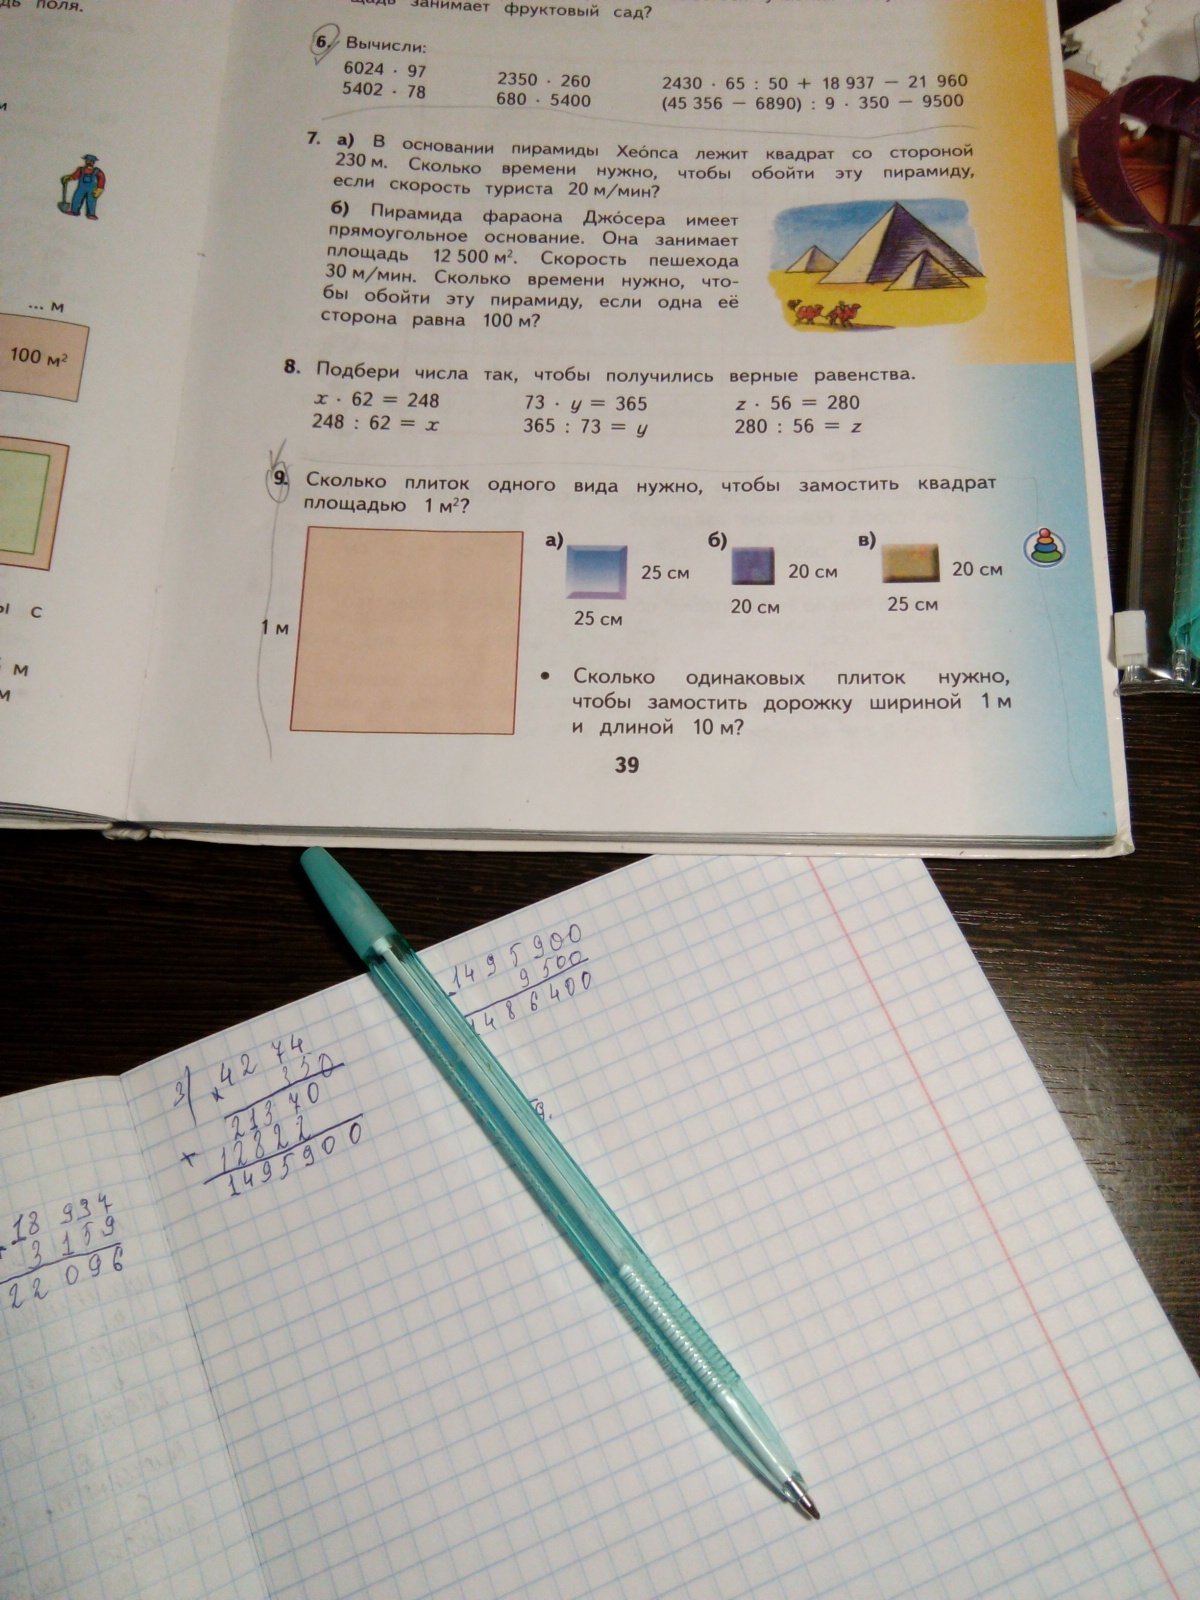 дь поля.
щадь занимает фруктовый сад?
6. Вычисли:
6024 · 97
5402 · 78
2350 · 260
680 · 5400
2430 · 65 : 50 + 18 937 − 21 960
(45 356 − 6890) : 9 · 350 − 9500
7. а) В основании пирамиды Хео́пса лежит квадрат со стороной
230 м. Сколько времени нужно, чтобы обойти эту пирамиду,
если скорость туриста 20 м/мин?
б) Пирамида фараона Джо́сера имеет
прямоугольное основание. Она занимает
площадь 12 500 м². Скорость пешехода
30 м/мин. Сколько времени нужно, что-
бы обойти эту пирамиду, если одна её
сторона равна 100 м?
... м
100 м²
8. Подбери числа так, чтобы получились верные равенства.
x · 62 = 248
248 : 62 = x
73 · y = 365
365 : 73 = y
z · 56 = 280
280 : 56 = z
9. Сколько плиток одного вида нужно, чтобы замостить квадрат
площадью 1 м²?
1 м
а)
25 см
25 см
б)
20 см
20 см
в)
20 см
25 см
• Сколько одинаковых плиток нужно,
чтобы замостить дорожку шириной 1 м
и длиной 10 м?
ы с
м
м
39
1495900
9500
1486400
3) × 4274
350
21370
+ 12822
1495900
18 937
3 159
22 096